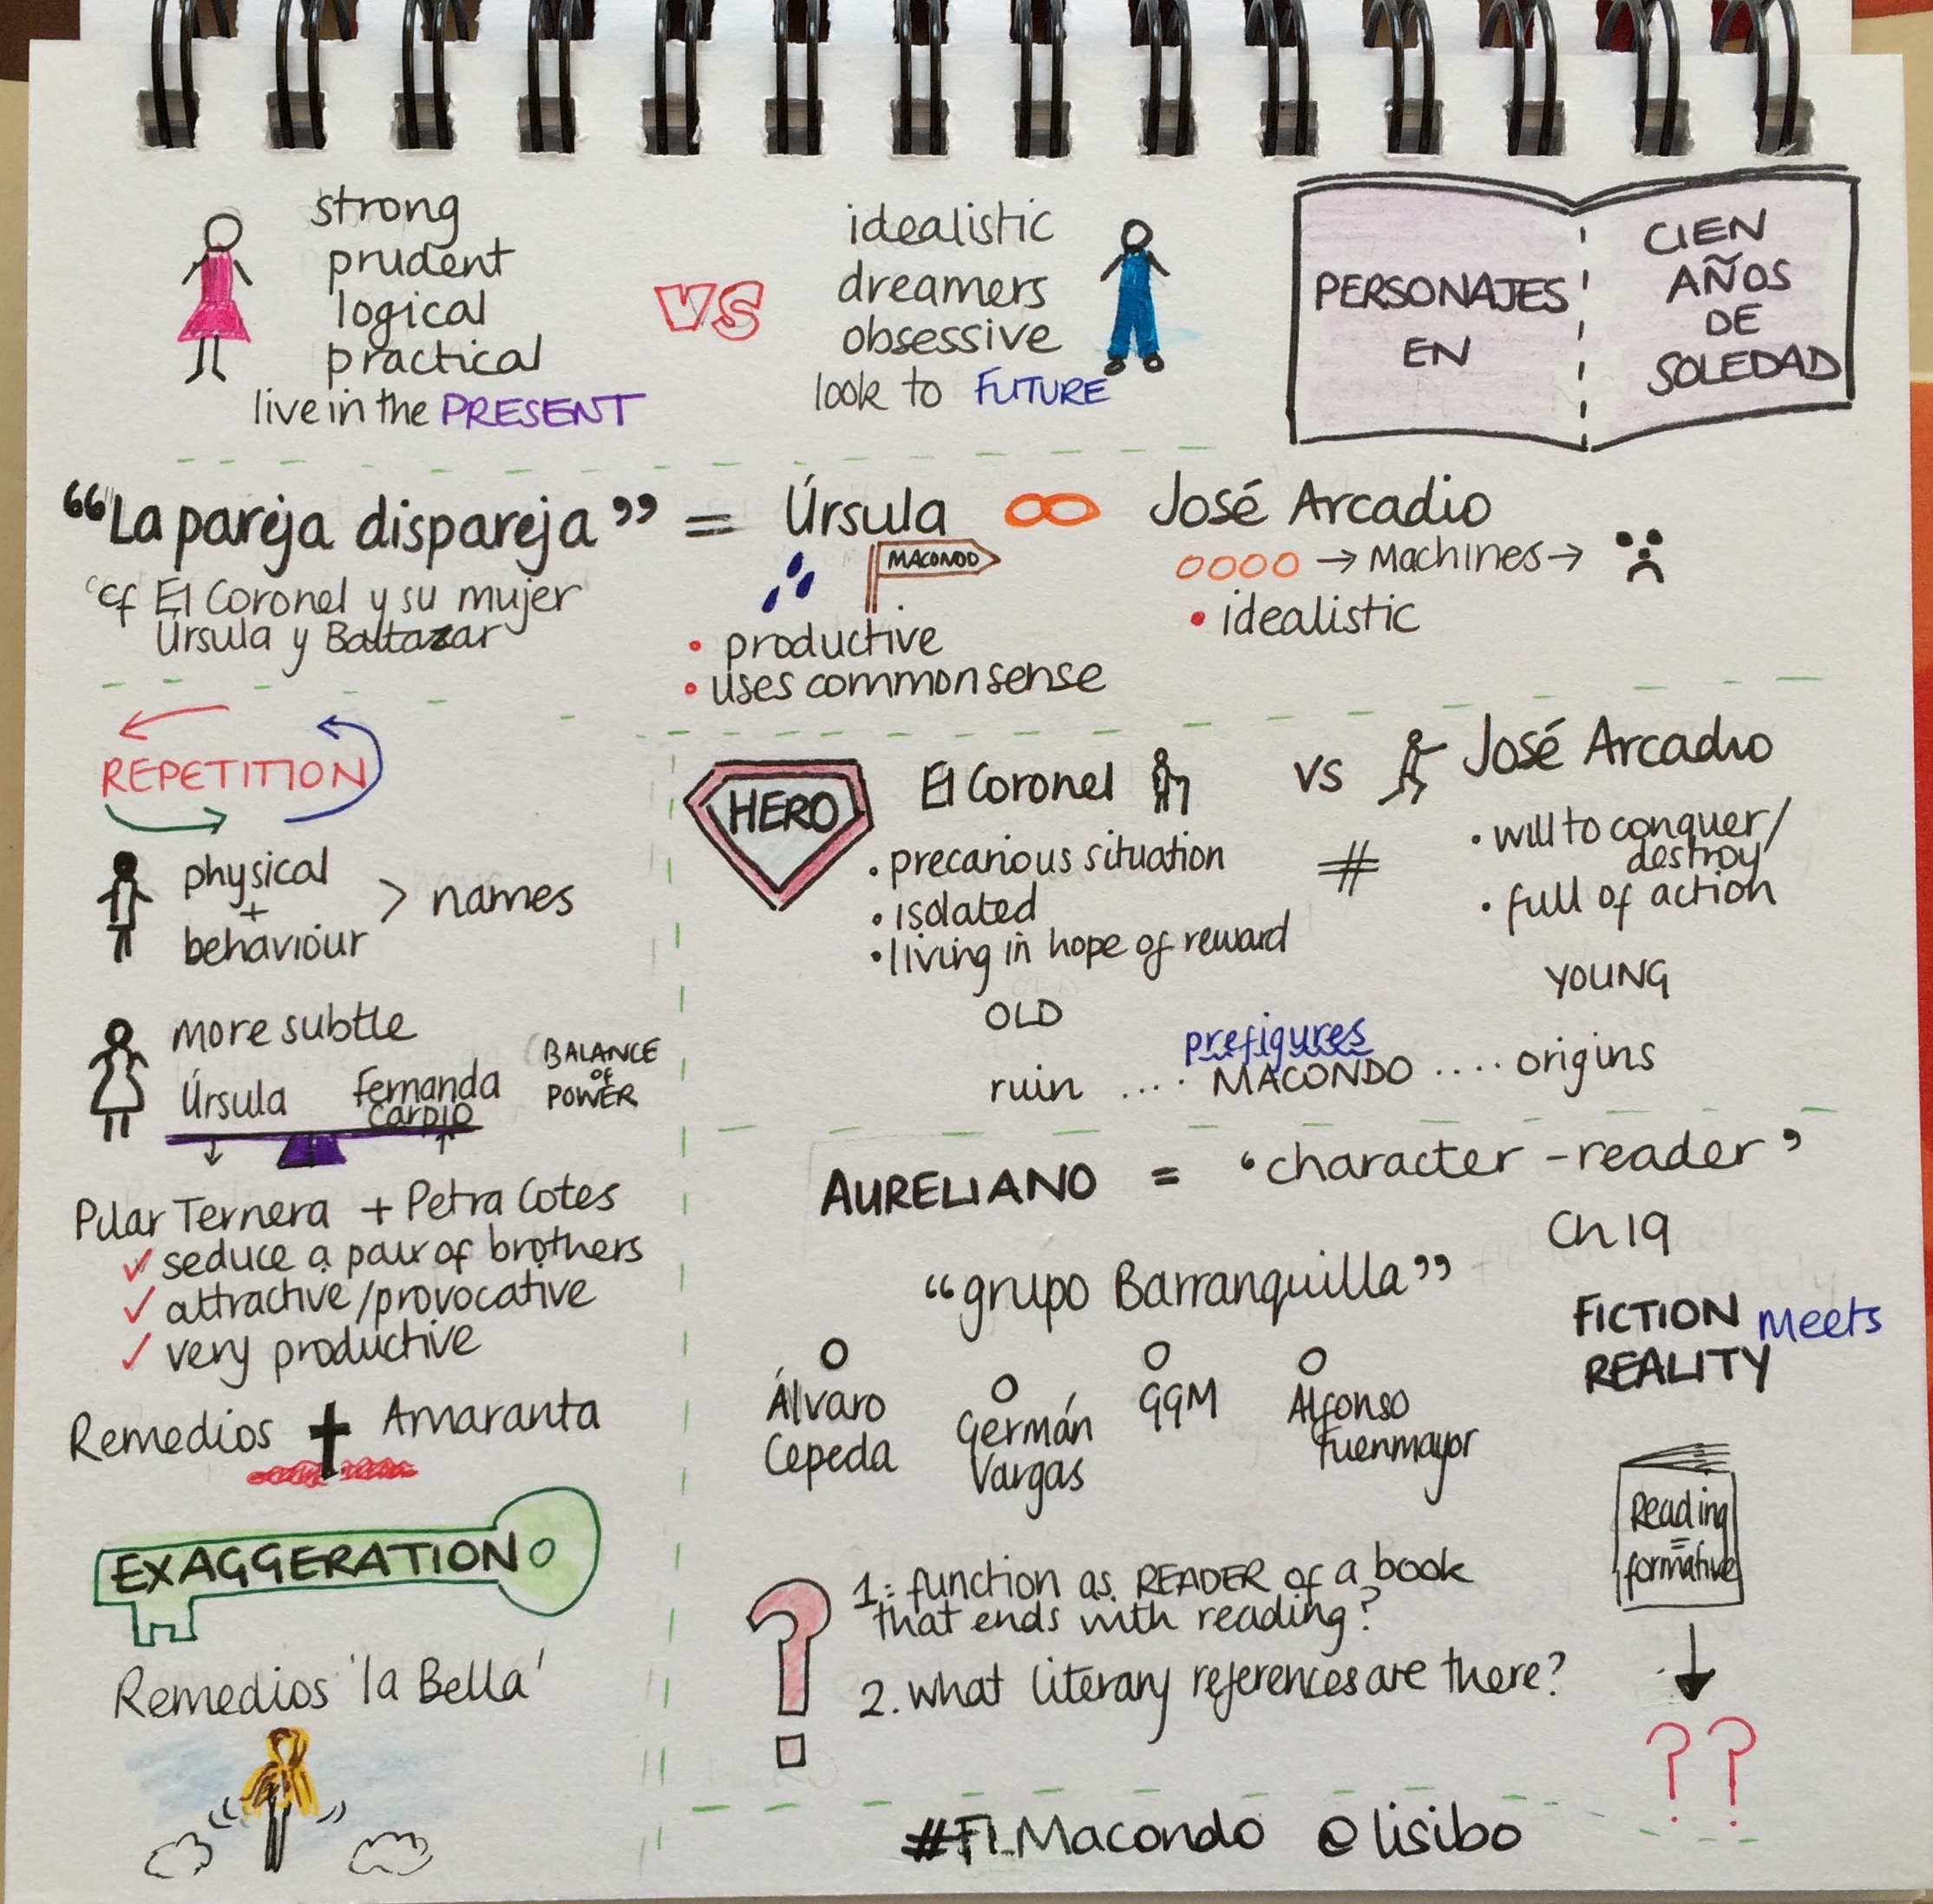 strong
prudent
logical
practical
live in the PRESENT
VS
idealistic
dreamers
obsessive
look to FUTURE
PERSONAJES
EN
CIEN
AÑOS
DE
SOLEDAD
"La pareja dispareja" = Úrsula ∞ José Arcadio
cf El Coronel y su mujer
Úrsula y Baltazar
MACONDO
• productive
• uses common sense
OOOO → Machines →
• idealistic
REPETITION
physical
+
behaviour > names
more subtle
Úrsula
Fernanda
Carpio
BALANCE
OF
POWER
Pilar Ternera + Petra Cotes
✓ seduce a pair of brothers
✓ attractive/provocative
✓ very productive
Remedios Amaranta
EXAGGERATION
Remedios 'la Bella'
HERO
El Coronel vs José Arcadio
• precarious situation
• isolated
• living in hope of reward
OLD
≠
• will to conquer/
destroy
• full of action
YOUNG
prefigures
ruin .... MACONDO .... origins
AURELIANO = 'character-reader'
Ch 19
"grupo Barranquilla"
FICTION meets
REALITY
Álvaro
Cepeda
Germán
Vargas
GGM
Alfonso
Fuenmayor
Reading
=
formative
??
?
1: function as READER of a book
that ends with reading?
2. What literary references are there?
#FLMacondo @lisibo